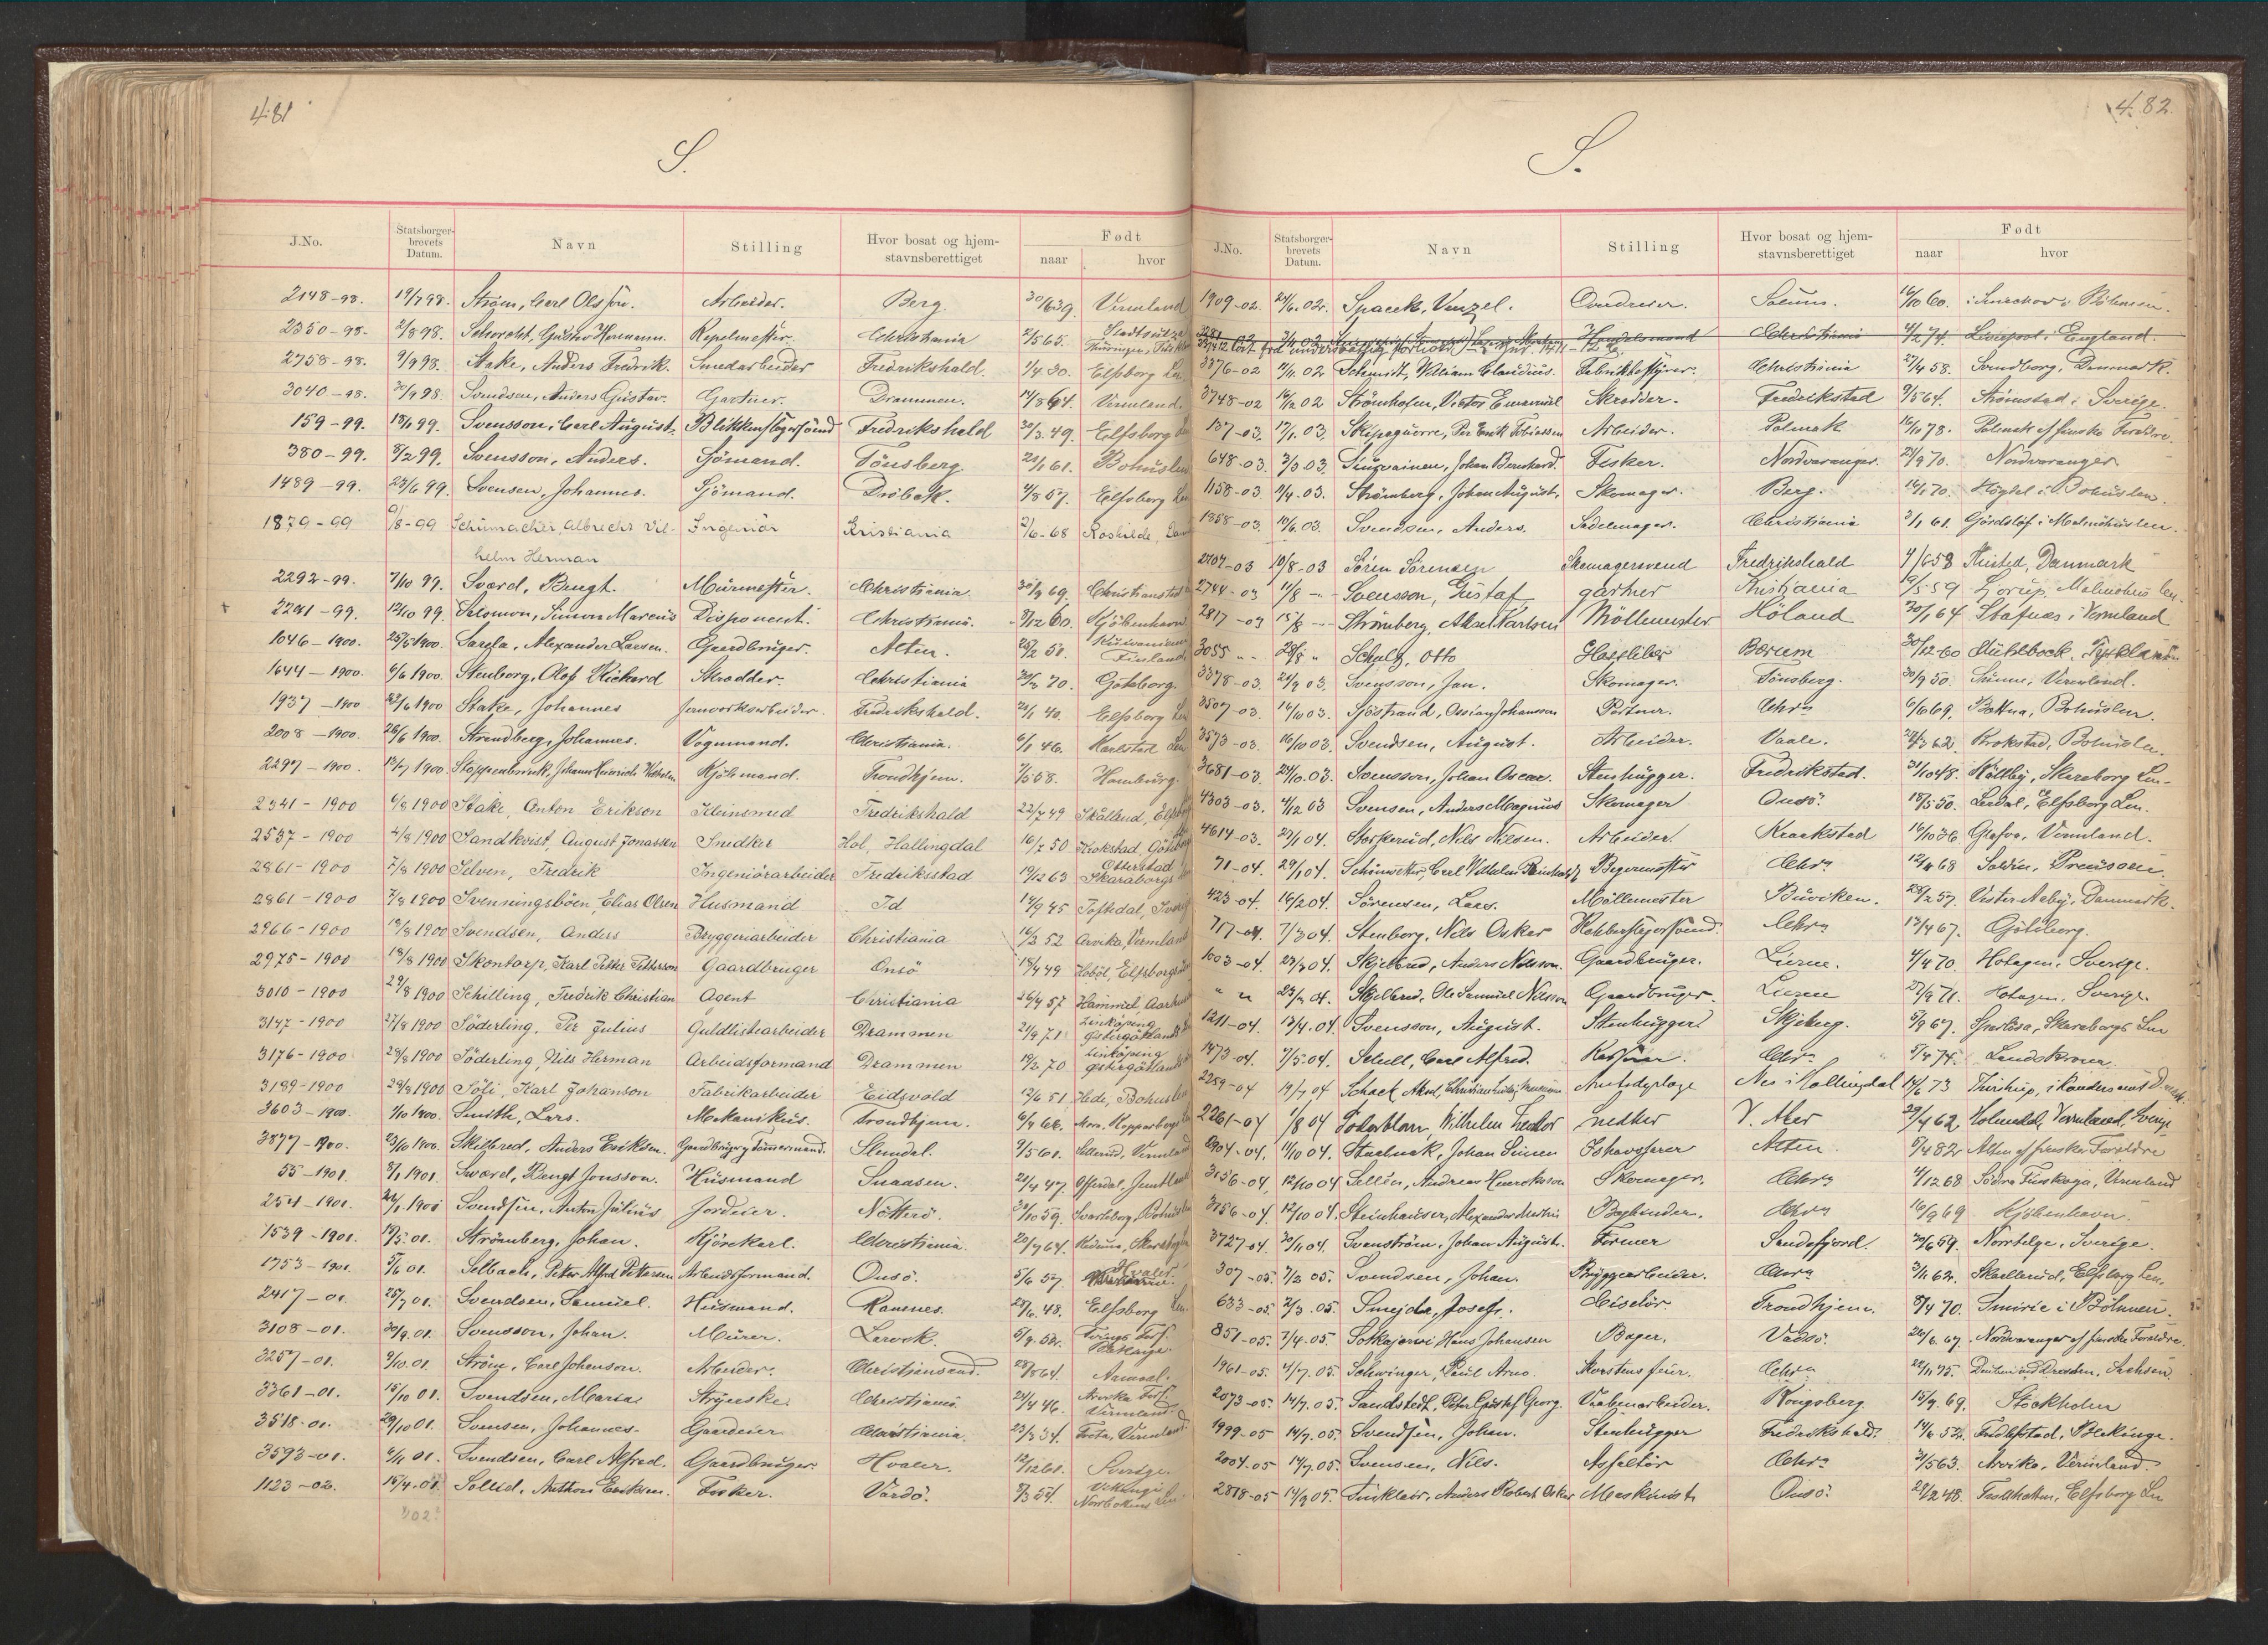 481
S.
J.No. Statsborgerbrevets Datum. Navn Stilling Hvor bosat og hjemstavnsberettiget Født naar hvor
2148-98. 19/7 98. Strøm, Carl Olsson. Arbeider. Berg. 30/6 39. Vermland
2350-98. 2/8 98. Gustav Hermann. Kapelmester. Christiania 2/5 65. Thüringen,
2758-98. 9/9 98. Stake, Anders Fredrik. Smedarbeider Fredrikshald. 1/4 30. Elfsborg Len
3040-98. 30/9 98. Svendsen, Anders Gustav. Gartner. Drammen. 14/8 64. Vermland.
159-99. 18/1 99. Svensson, Carl August. Blikkenslagersvend Fredrikshald 30/3 49. Elfsborg Len
380-99. 8/2 99. Svensson, Anders. Sjømand. Tönsberg. 21/1 61. Bohuslen
1489-99. 23/6 99. Svensen, Johannes. Sjömand. Dröbak. 4/8 57. Elfsborg Len
1879-99 9/8-99 Schumacher, Albrecht Vil- Ingeniör Kristiania 2/6-68 Roskilde,
helm Herman
2292-99. 7/10 99. Sværd, Bengt. Murmester. Christiania 30/9 69. Christianstad
2291-99. 12/10 99. Salomon, Simon Marcus Disponent. Christiania. 8/12 60. Kjöbenhavn
1046-1900. 25/5 1900. Sarela, Alexander Larsen. Gaardbruger. Alten. 28/2 50. Finland
1644-1900. 6/6 1900. Stenborg, Olof Rickard Skrædder. Christiania 20/3 70. Göteborg.
1937-1900 23/6 1900 Stake, Johannes Jernverksarbeider. Fredrikshald. 21/1 40. Elfsborg Len
2008-1900. 26/6 1900. Strandberg, Johannes. Vognmand. Christiania. 6/1 46. Karlstad Len
2297-1900. 13/7 1900. Stoppenbrink, Johann Heinrich Wilhelm Kjöbmand. Trondhjem. 7/5 68. Hamburg.
2341-1900 4/8 1900 Stake, Anton Erikson Kleinsmed Fredrikshald 22/7 49 Skålland,
2537-1900 4/8 1900 Sandkvist, August Jonassen Snedker Hol, Hallingdal 16/7 50 Krokstad, Göteborg
2861-1900 7/8 1900 Selven, Fredrik Ingeniörarbeider Fredriksstad 19/12 63 Otterstad Skaraborgs
2861-1900 7/8 1900 Svenningsböen, Elias Olsen Husmand Id 14/9 45 Töftedal, Sverige
2966-1900 18/8 1900 Svendsen, Anders Bryggeriarbeider Christiania 16/2 52 Arvika, Vermland
2975-1900 18/8 1900 Skontorp, Karl Petter Petterson Gaardbruger Onsö 18/4 49 Hoböl, Elfsborgs
3010-1900 29/8 1900 Schilling, Fredrik Christian Agent Christiania 26/4 57 Hammel, Aarhus
3147-1900 27/8 1900 Söderling, Per Julius Guldlistearbeider Drammen 21/9 71 Linköping Østergötland
3176-1900 28/8 1900 Söderling, Nils Herman Arbeidsformand Drammen 19/2 70 Linköping Østergötlands
3189-1900 29/8 1900 Söli, Karl Johanson Fabrikarbeider Eidsvold 13/6 51 Hede, Bohuslen
3603-1900. 1/10 1900. Smith, Lars. Mekanikus. Trondhjem. 6/4 68. Mora, Kopparbergs
3877-1900. 23/10 1900. Skitbred, Anders Eriksen. Gaardbruger og Tømmermand. Slemdal. 9/5 61. Sillerud, Vermland
55-1901. 8/1 1901. Sværd, Bengt Jonsson. Husmand Snaasen. 21/4 47. Offerdal, Jemtland
254-1901. 24/1 1901 Svendsen, Anton Julius Jordeier. Nötterö. 31/10 59. Svarteborg, Bohuslen
1539-1901. 18/5 01. Strömberg, Johan. Kjörekarl. Christiania. 20/7 64. Skaraborg
1753-1901. 5/6 01. Selbach, Peter Alfred Petersen Arbeidsformand. Onsö. 5/6 57. Hvaler.
2417-01. 25/7 01. Svendsen, Samuel. Husmand. Ramnes. 28/6 48. Elfsborg Len
3108-01. 30/9 01. Svensson, Johan. Murer. Larvik. 8/9 52. Tvings Fors. Blekinge.
3257-01. 9/10 01. Ström, Carl Johanson. Arbeider. Christiansand. 28/8 64.
3361-01. 15/10 01. Svendsen, Maria. Strygerske. Christiania. 24/4 46. Arvika Fors. Vermland.
3518-01. 29/10 01. Svensen, Johannes. Gaardeier Christiania. 23/3 34. Vermland
3593-01. 6/11 01. Svendsen, Carl Alfred. Gaardbruger. Hvaler. 12/12 61. Sverige.
1123-02. 15/4 01. Sollid, Anthon Eriksen. Fisker. Vardö. 8/3 54. Norrbottens Len.
02?
482
S.
J.No. Statsborgerbrevets Datum. Navn Stilling Hvor bosat og hjemstavnsberettiget Født naar hvor
1909-02. 24/6 02. Spacek, Venzel. Solum. 16/10 60. i Böhmen.
Handelsmand Christiania 4/2 74. Liverpool i England.
3376-02 11/11 02 Schmidt, William Claudius. Fabrikbestyrer. Christiania 27/4 58. Svendborg, Danmark.
3748-02 16/12 02 Strömhofen, Victor Emanuel Skrædder. Fredrikstad 9/5 64. Strömstad i Sverige.
137-03. 17/1 03. Skipaguorre, Per Erik Tobiassen Arbeider. Polmak 16/1 78. Polmak af finske Forældre.
648-03. 3/3 03. Johan Bernhard. Fisker. Nordvaranger. 22/9 70. Nordvaranger
1158-03. 9/4-03. Strömberg, Johan August. Skomager. Berg. 16/1 70. i Bohuslen.
1858-03. 10/6 03. Svendsen, Anders. Sadelmager. Christiania 3/1 61. Gårdslöf i Malmöhuslen.
2707-03 10/8-03 Sören Sörensen Skomagersvend Fredrikshald 4/6 58 Thisted, Danmark
2744-03 11/8 -"- Svensson, Gustaf gartner Kristiania 19/5 59 Malmöhus len.
2817-03 15/8 -"- Strömberg, Aksel Karlsen Möllemester Höland 30/1 64 Stafnäs i Vermland
3055 " - 28/8 " Schulz, Otto Bærum 30/12-60 Mühlbock. Tyskland
3378-03. 21/9 03. Svensson, Jan. Skomager. Tönsberg. 30/9 50. Sunne, Vermland.
3507-03. 14/10 03. Sjöstrand, Ossian Johansson Portner. Chra 6/10 69. Bottna, Bohuslen.
3573-03. 16/10 03. Svendsen, August. Arbeider. Vaale. 27/3 62. Krokstad, Bohuslen.
3681-03. 24/10 03. Svensson, Johan Oscar. Stenhugger. Fredrikstad. 31/10 48. Kållby, Skaraborg Len.
4303-03. 4/12 03 Svensen, Anders Magnus Skomager Onsö. 18/5 50. Lerdal, Elfsborg Len.
4614-03. 29/1 04. Storkerud, Nils Nilsen. Arbeider. Kraakstad 16/10 36 Grafva, Vermland.
71-04. 29/1 04. Carl Vilhelm Reinholdt Bagermester Chra 12/11 68 Soldin, Preussen.
423-04. 16/2 04. Sörensen, Lars. Möllemester Buviken. 28/2 57. Vester Aaby, Danmark.
717-04. 7/3 04. Stenborg, Nils Oskar Kobberslagersvend. Chra 13/4 67. Göteborg.
1003-04. 23/3 04. Skjelbred, Anders Nilsson. Gaardbruger. Lierne. 4/4 70. Hotagen, Sverige.
" " 23/3 04. Skjelbred, Ole Samuel Nilsson Gaardbruger. Lierne 27/9 71. Hotagen, Sverige.
1211-04. 13/4.04. Svensson, August. Stenhugger. Skjeberg. 5/9 67. Sparlösa, Skaraborgs Len
1473-04. 7/5 04. Schell, Carl Alfred. Chra 5/4 74. Landskrona.
2259-04 19/7 04 Schack Aksel, Christian Ludvig Amtsdyrlæge Nes i Hallingdal 14/6 73 Thirstrup, i Randers amt
2261-04 1/8 04 Söderblom, Wilhelm Fredor snedker V. Aker 29/4 62 Holmedal, Vermland, Sverige
2904-04. 11/10 04. Johan Simen Ishavsfarer Alten. 5/4 82 Alten af finske Forældre
3156-04. 12/10 04 Sellén, Andreas Henriksson Skomager. Chra 4/12 68 Södra Finskoga, Vermland
3156-04. 12/10 04. Steinhauser, Alexander Martin Bogbinder. Chra 16/9 69 Kjöbenhavn.
3727-04 30/11 04. Svenström, Johan August. Former Sandefjord. 30/6 59. Norrtelge, Sverige.
307-05. 7/2 05. Svendsen, Johan. Bryggearbeider. Chra 3/11 62. Skållerud, Elfsborg Len.
633-05. 2/3.05. Smejda, Josef. Ciselör Trondhjem. 8/4 70. i Böhmen.
851-05. 7/4.05. Sotkajærvi Hans Johansen Bager. Vadsö. 26/6 67. Nordvaranger af finske Forældre
1961-05. 4/7.05. Schwinger, Paul Arno. Skorstensfeier. Chra 22/11 75. Dresden, Sachsen.
2073-05. 14/7.05. Sandstedt, Peter Gustaf Georg. Vaabenarbeider. Kongsberg 15/9.69. Stockholm
1999-05 14/7.05. Svendsen, Johan. Stenhugger Fredrikshald. 14/6 52. Blekinge.
2004-05 14/7.05. Svensen, Nils. Asfaltör Chra 31/5 63. Arvika, Vermland
2818-05 14/9 05. Sinkler, Anders Robert Oskar Maskinist Onsö. 28/2 48. Elfsborg Len